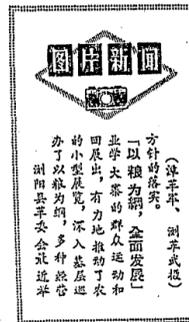 图片新闻
浏阳县革委会最近举
办了以粮为纲，多种经营
的小型展览，深入基层巡
回展出，有力地推动了农
业学大寨的群众运动和
“以粮为纲，全面发展”
方针的落实。